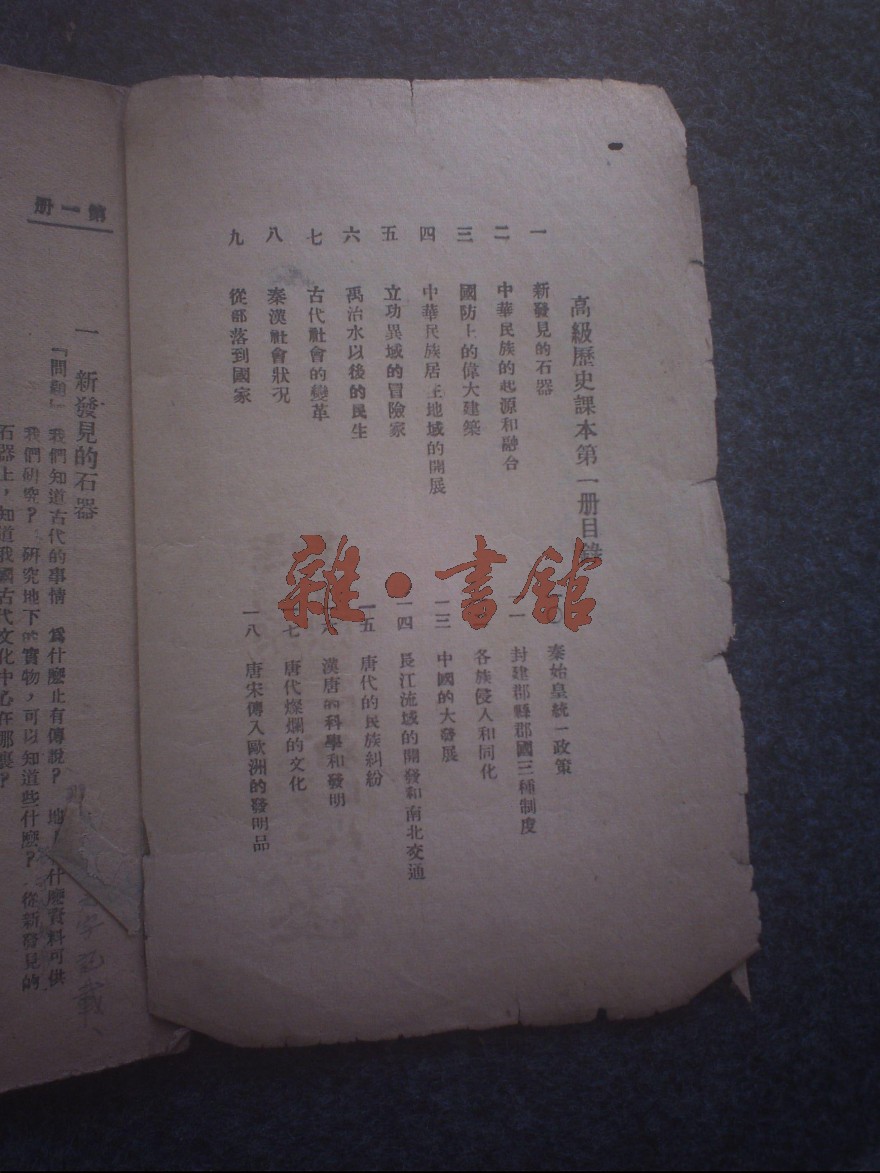 高級歷史課本第一册目錄
一 新發見的石器
二 中華民族的起源和融合
三 國防上的偉大建築
四 中華民族居住地域的開展
五 立功異域的冒險家
六 禹治水以後的民生
七 古代社會的變革
八 秦漢社會狀况
九 從部落到國家
〇 秦始皇統一政策
一 封建郡縣郡國三種制度
各族侵入和同化
一三 中國的大發展
一四 長江流域的開發和南北交通
一五 唐代的民族糾紛
六 漢唐的科學和發明
七 唐代燦爛的文化
一八 唐宋傳入歐洲的發明品
雜·書館
第一册
一 新發見的石器
「問題」 我們知道古代的事情 爲什麼止有傳說? 地 什麼資料可供
我們研究? 研究地下的實物,可以知道些什麼? 從新發見的
石器上,知道我國古代文化中心在那裏?
記載、